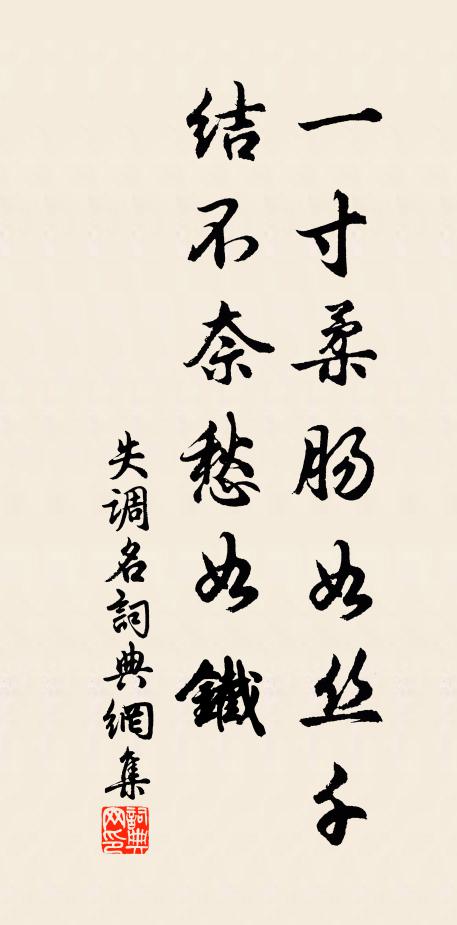 一寸柔肠如丝千
结不奈愁如鐵
失调名詞典網集
詞典网印